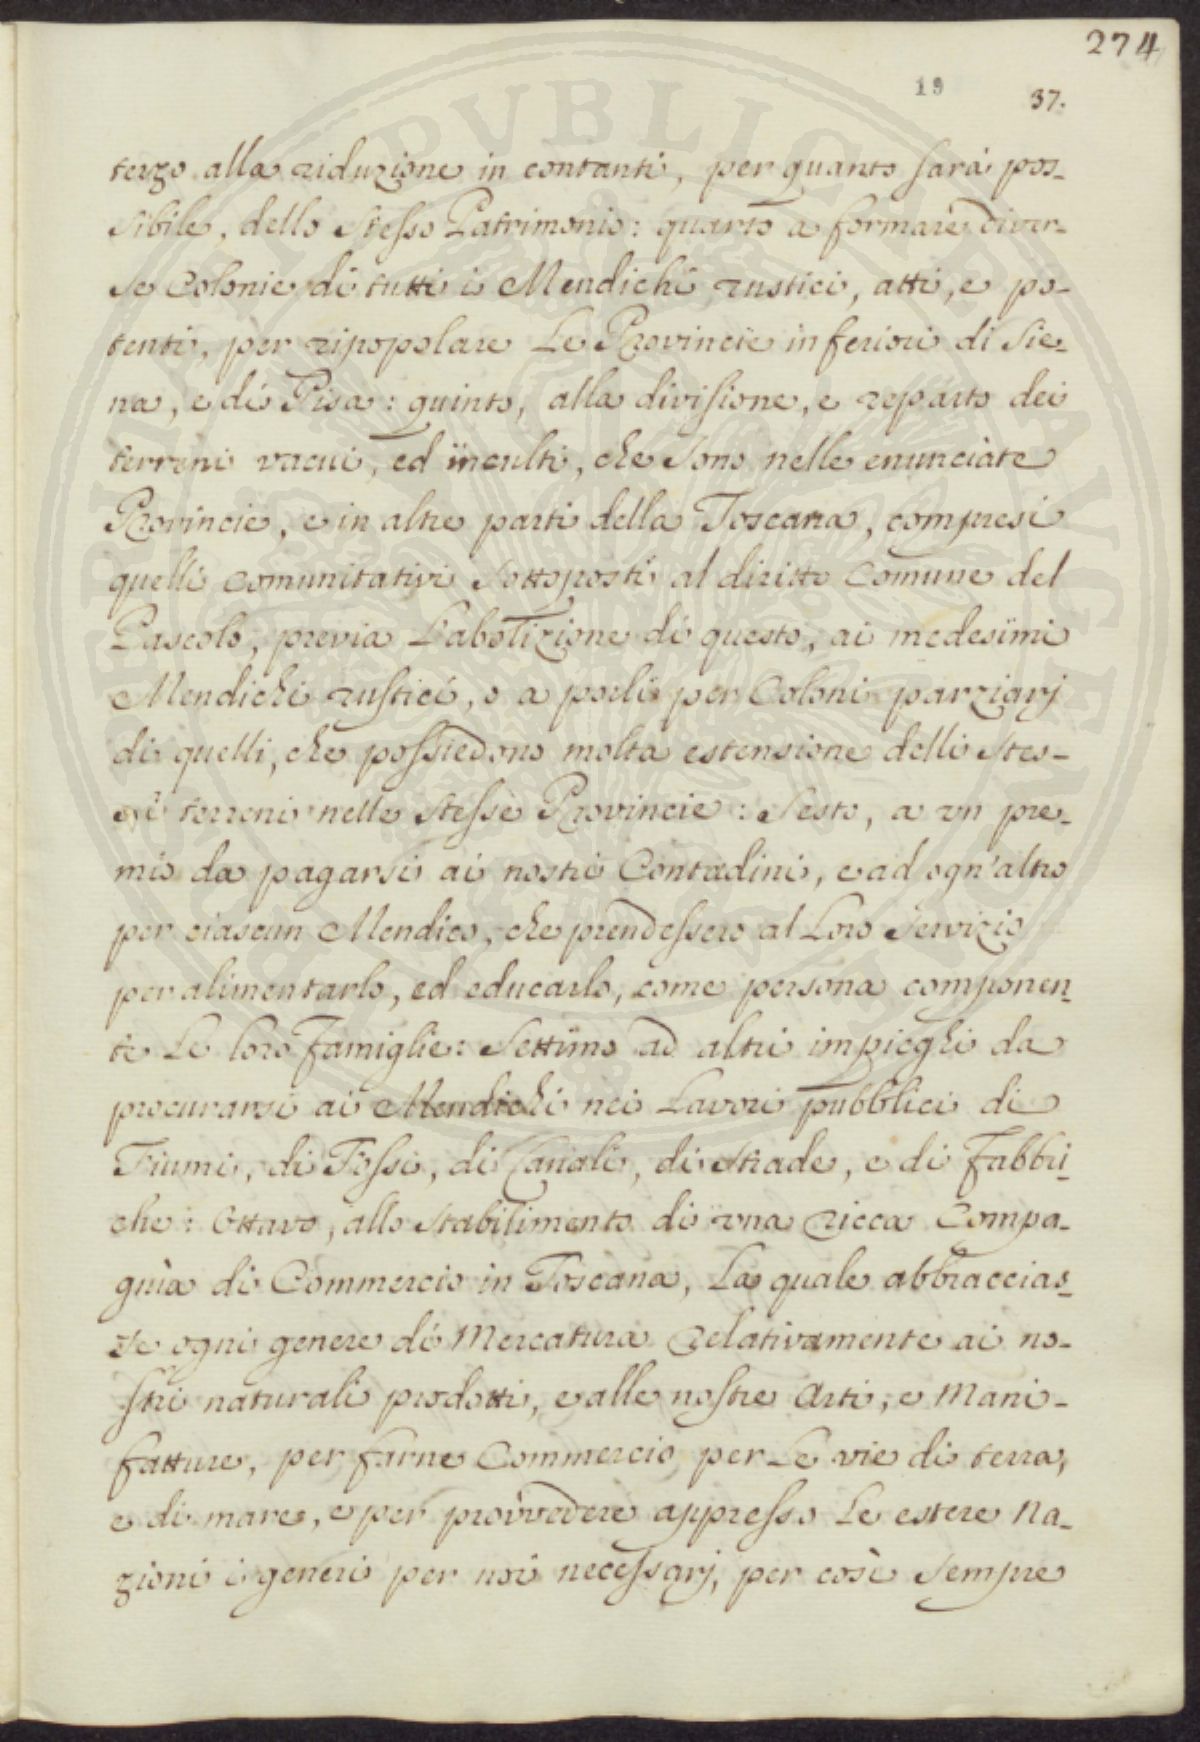 274
19
37.
terzo alla riduzione in contanti, per quanto sarà pos-
sibile, dello stesso Patrimonio: quarto a formare diver-
se Colonie di tutti i Mendichi rustici, atti, e po-
tenti, per ripopolare Le Provincie inferiori di Sie-
na, e di Pisa: quinto, alla divisione, e reparto dei
terreni vacui, ed inculti, che sono nelle enunciate
Provincie, e in altre parti della Toscana, compresi
quelli comunitativi sottoposti al diritto Comune del
Pascolo, previa L'abolizione di questo, ai medesimi
Mendichi rustici, o a porli per Coloni parziarj
di quelli, che possiedono molta estensione delli stes-
si terreni nelle stesse Provincie: Sesto, a un pre-
mio da pagarsi ai nostri Contadini, e ad ogn'altro
per ciascun Mendico, che prendessero al Loro servizio
per alimentarlo, ed educarlo, come persona componen-
te Le loro famiglie: Settimo ad altri impieghi da
procurarsi ai Mendichi nei Lavori pubblici di
Fiumi, di Fossi, di Canali, di strade, e di Fabbri-
che: Ottavo, allo stabilimento di una ricca Compa-
gnia di Commercio in Toscana, La quale abbraccias-
se ogni genere di Mercatura relativamente ai no-
stri naturali prodotti, e alle nostre Arti, e Mani-
fatture, per farne Commercio per Le vie di terra,
e di mare, e per provvedere appresso Le estere Na-
zioni i generi per noi necessarj, per così sempre